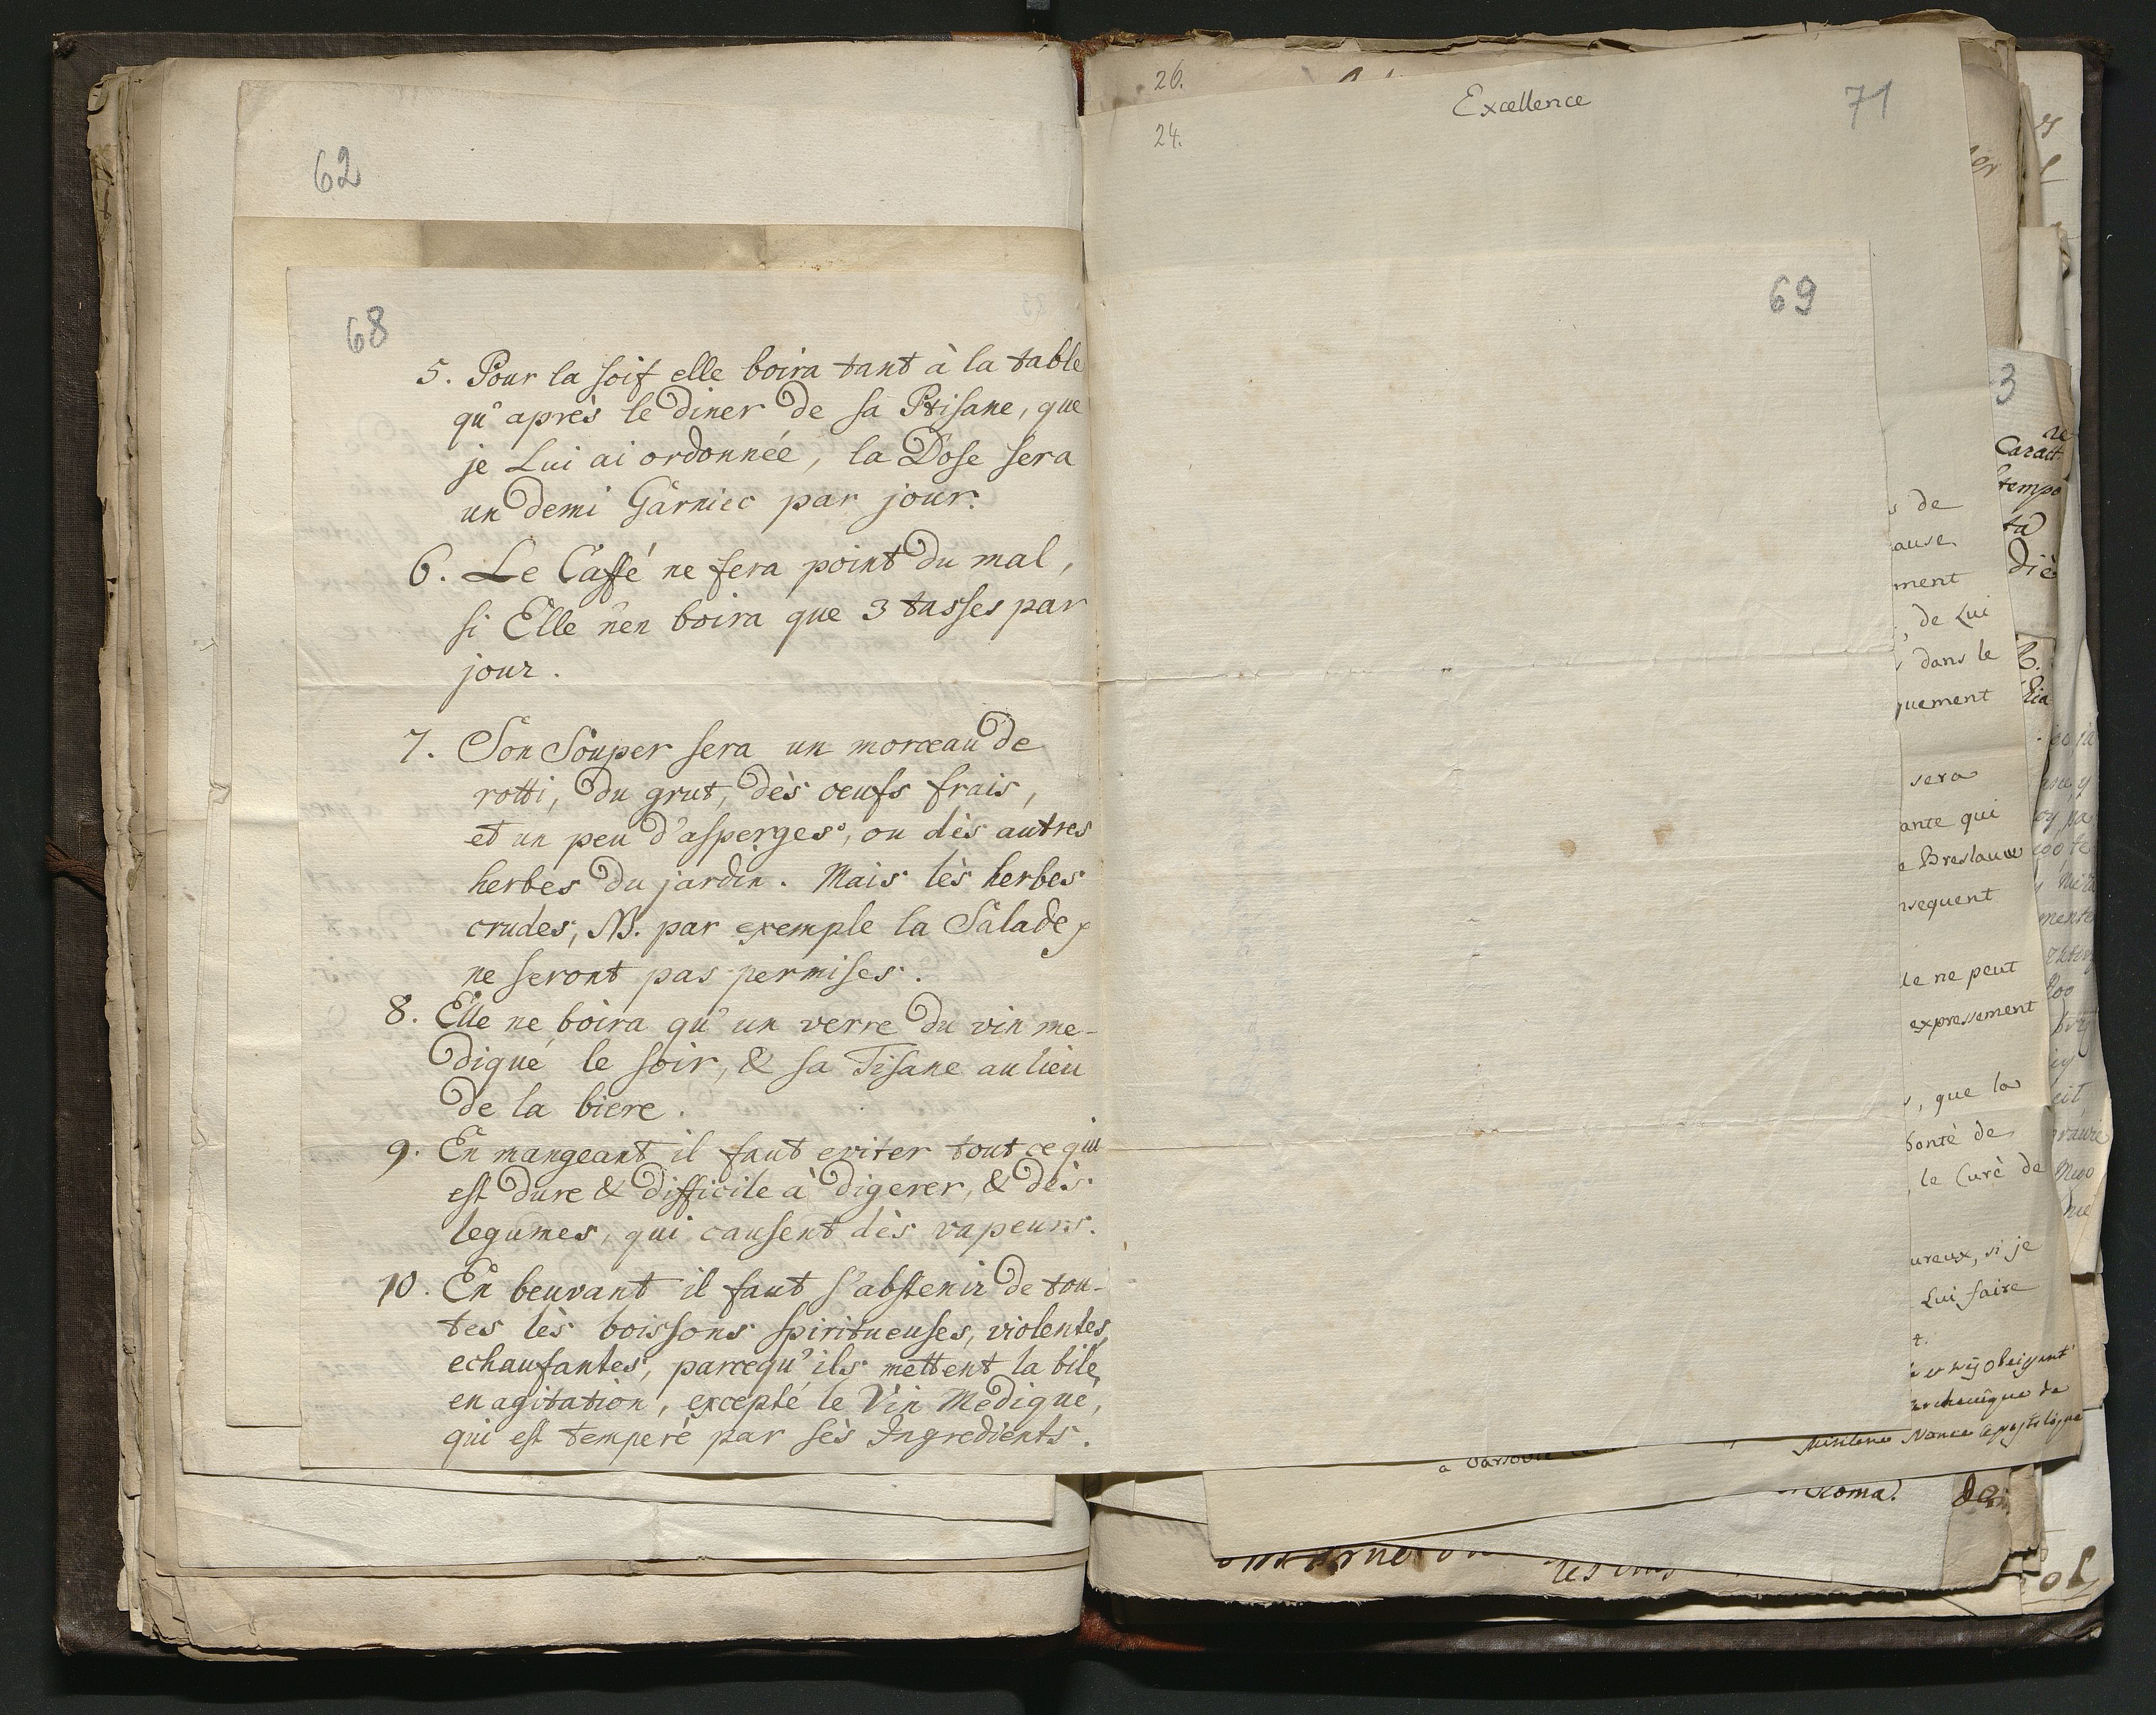 62
68
5. Pour la soif elle boira tant à la table
qu'après le diner de sa Ptisane, que
je Lui ai ordonnée, la Dose sera
un demi Garniec par jour.
6. Le Caffé ne fera point du mal,
si Elle n'en boira que 3 tasses par
jour.
7. Son Souper sera un morceau de
rotti, du grut, dès oeufs frais,
et un peu d'asperges, ou dès autres
herbes du jardin. Mais lès herbes
crudes, NB. par exemple la Salade,
ne seront pas permises.
8. Elle ne boira qu'un verre du vin me-
diqué le soir, & sa Tisane au lieu
de la biere.
9. En mangeant il faut eviter tout ce qui
est dure & difficile à digerer, & dès
legumes, qui causent dès vapeurs.
10. En beuvant il faut s'abstenir de tou-
tes lès boissons spiritueuses, violentes,
echaufantes, parcequ'ils mettent la bile
en agitation, excepté le Vin Mediqué,
qui est temperé par sès Ingredients.
26.
24.
Excellence
71
69
s de
ause
ment
, de Lui
dans le
quement
sera
ante qui
e Breslauw
nsequent
le ne peut
expressement
, que la
bonté de
, le Curé de
ureux, si je
Lui faire
3
Caratt
tempo
ta
die
a Varsovie
Roma.